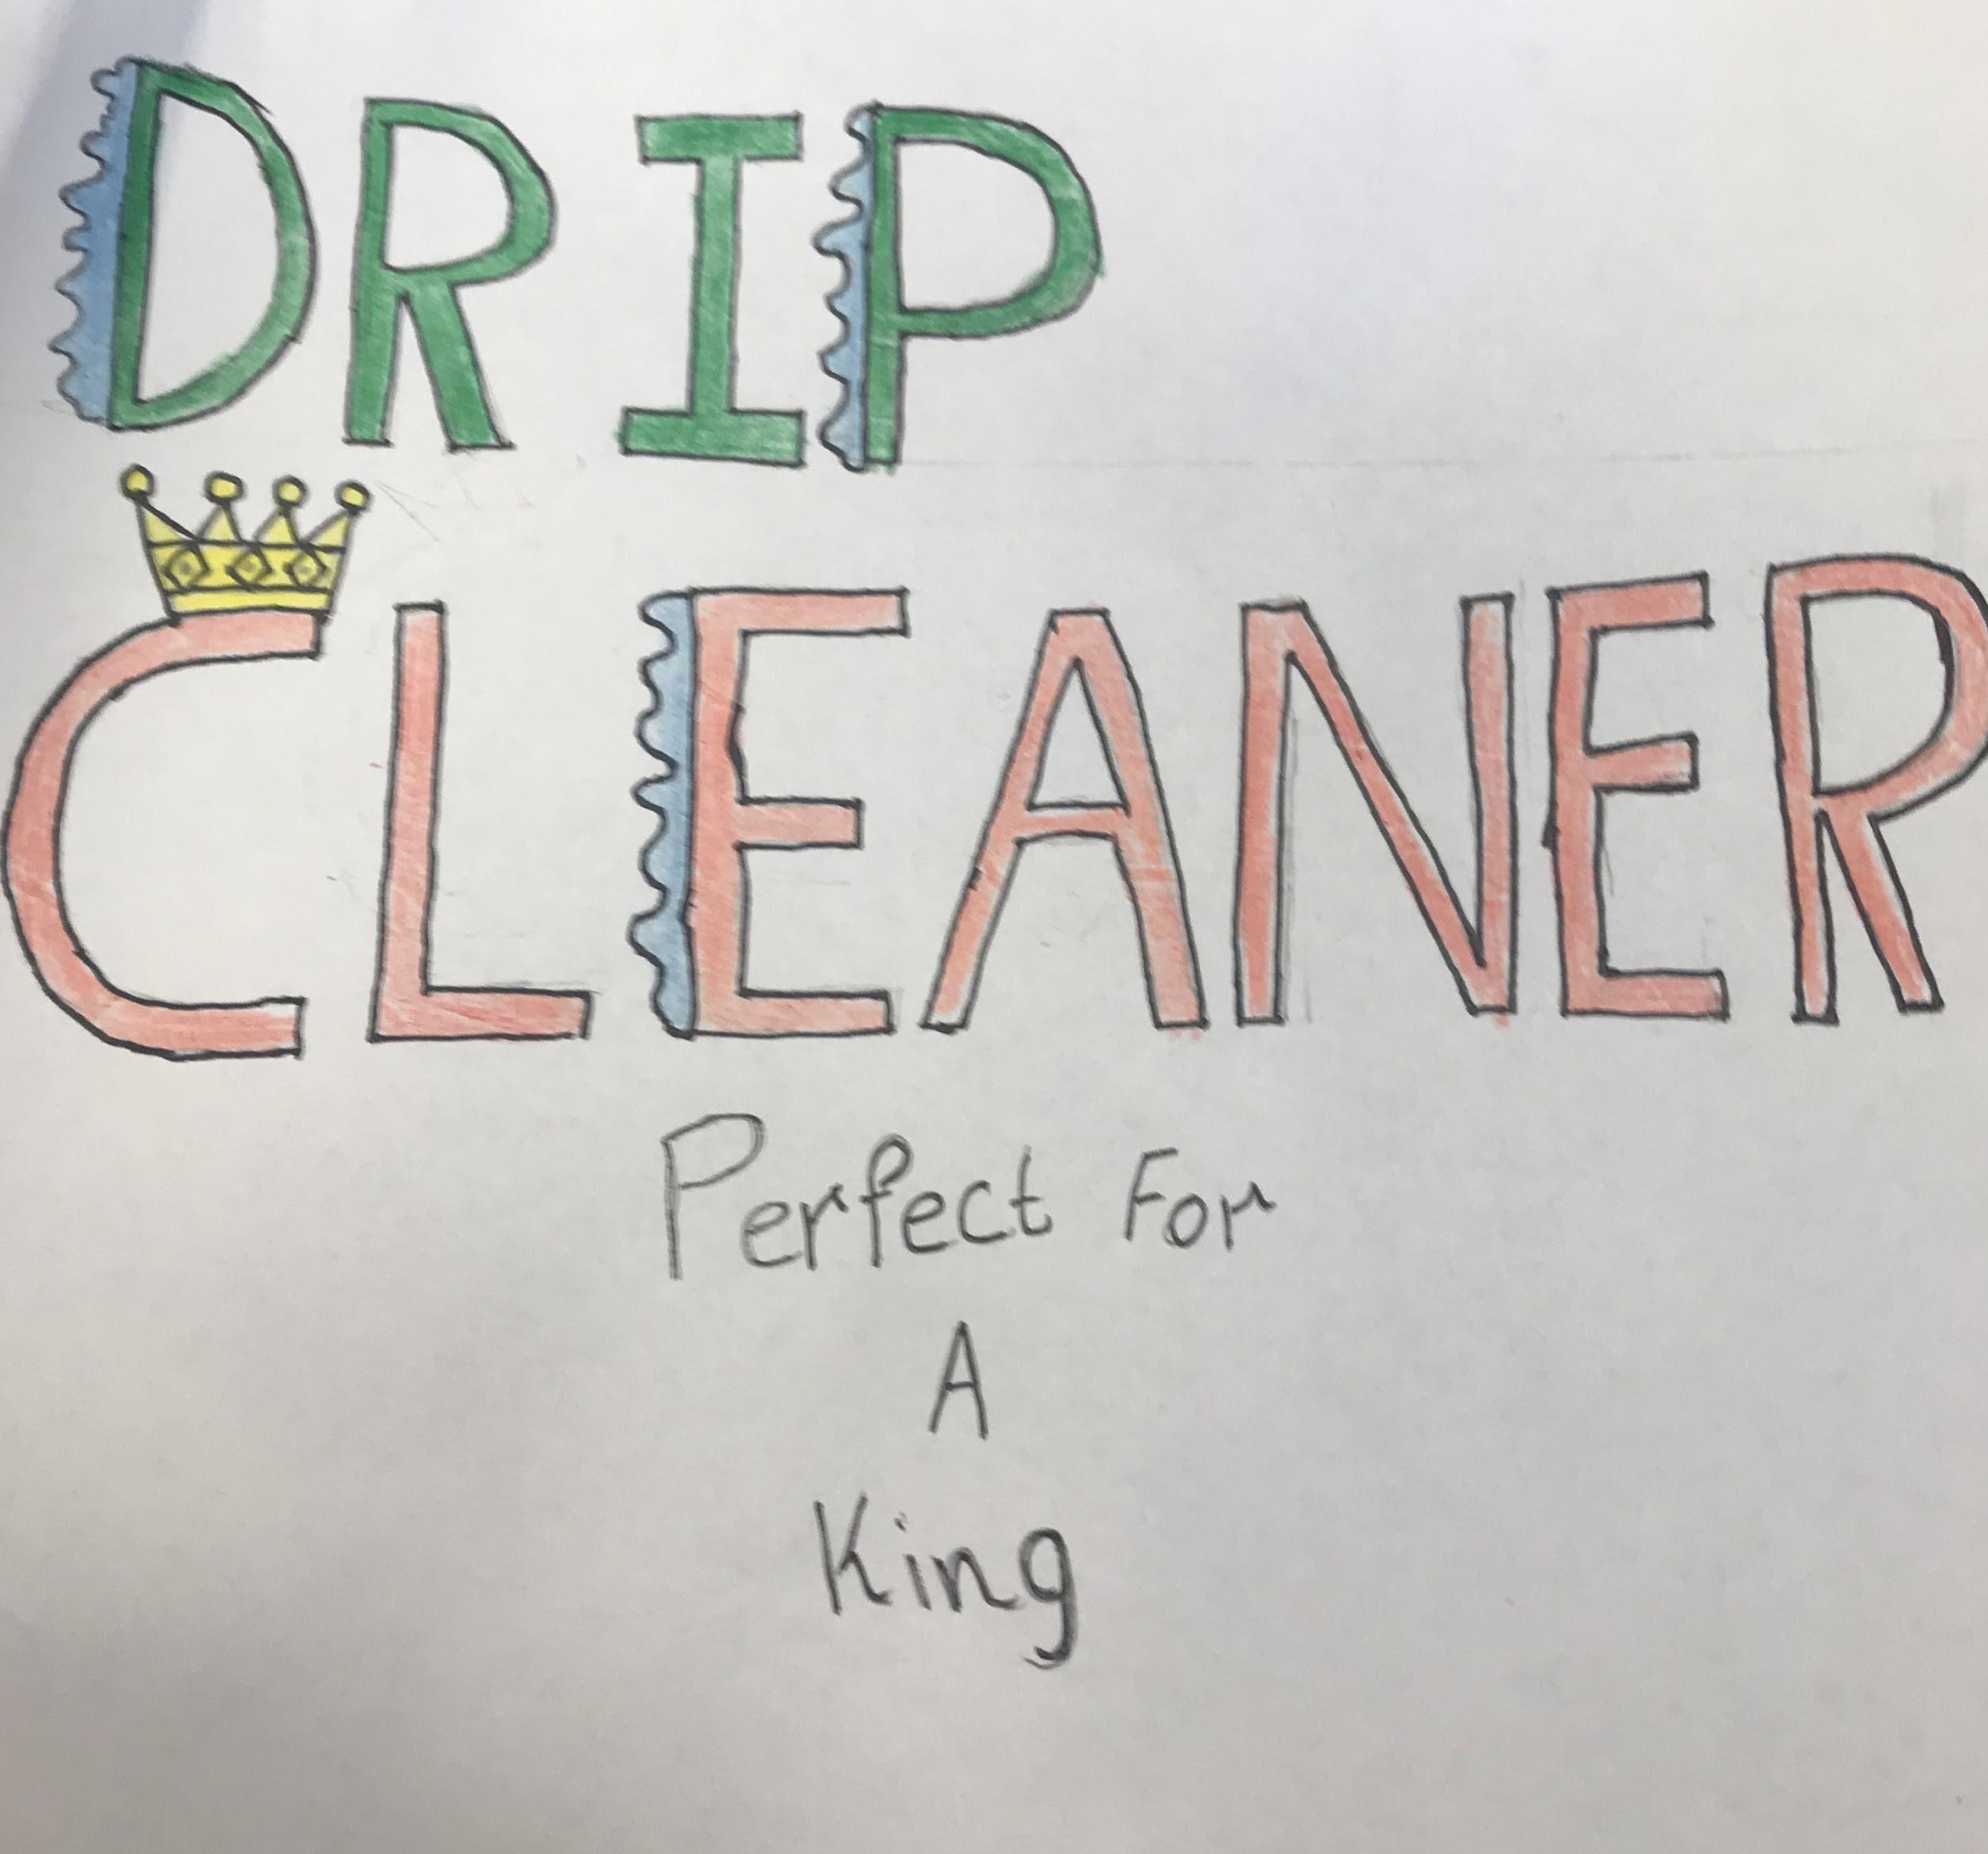 DRIP
CLEANER
Perfect For
A
King